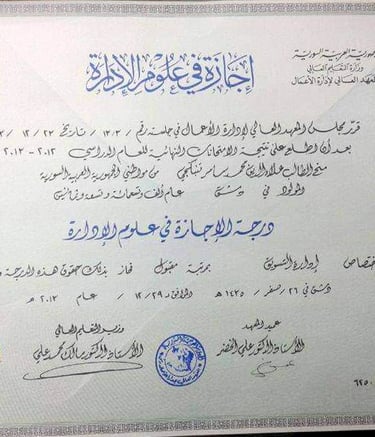 الجمهورية العربية السورية
وزارة التعليم العالي
المعهد العالي لإدارة الأعمال
إجازة في علوم الإدارة
قرر مجلس المعهد العالي لإدارة الأعمال في جلسته رقم /١٣٠٢/ تاريخ ٢٢ / ١٢ /
بعد أن اطلع على نتيجة الامتحانات النهائية للعام الدراسي ٢٠١٢ - ٢٠١٣
منح الطالب علاء الدين محمد سامر من مواطني الجمهورية العربية السورية
المولود في دمشق عام ألف وتسعمائة وتسعة وثمانين
درجة الإجازة في علوم الإدارة
اختصاص إدارة التسويق بمرتبة مقبول فحاز بذلك حقوق هذه الدرجة
دمشق في ٢٦ / صفر / ١٤٣٥ هـ الموافق ٢٩ / ١٢ / عام ٢٠١٣ م
عميد المعهد
وزير التعليم العالي
الأستاذ الدكتور علي الخضر
الأستاذ الدكتور مالك محمد علي
٦٢٥٠